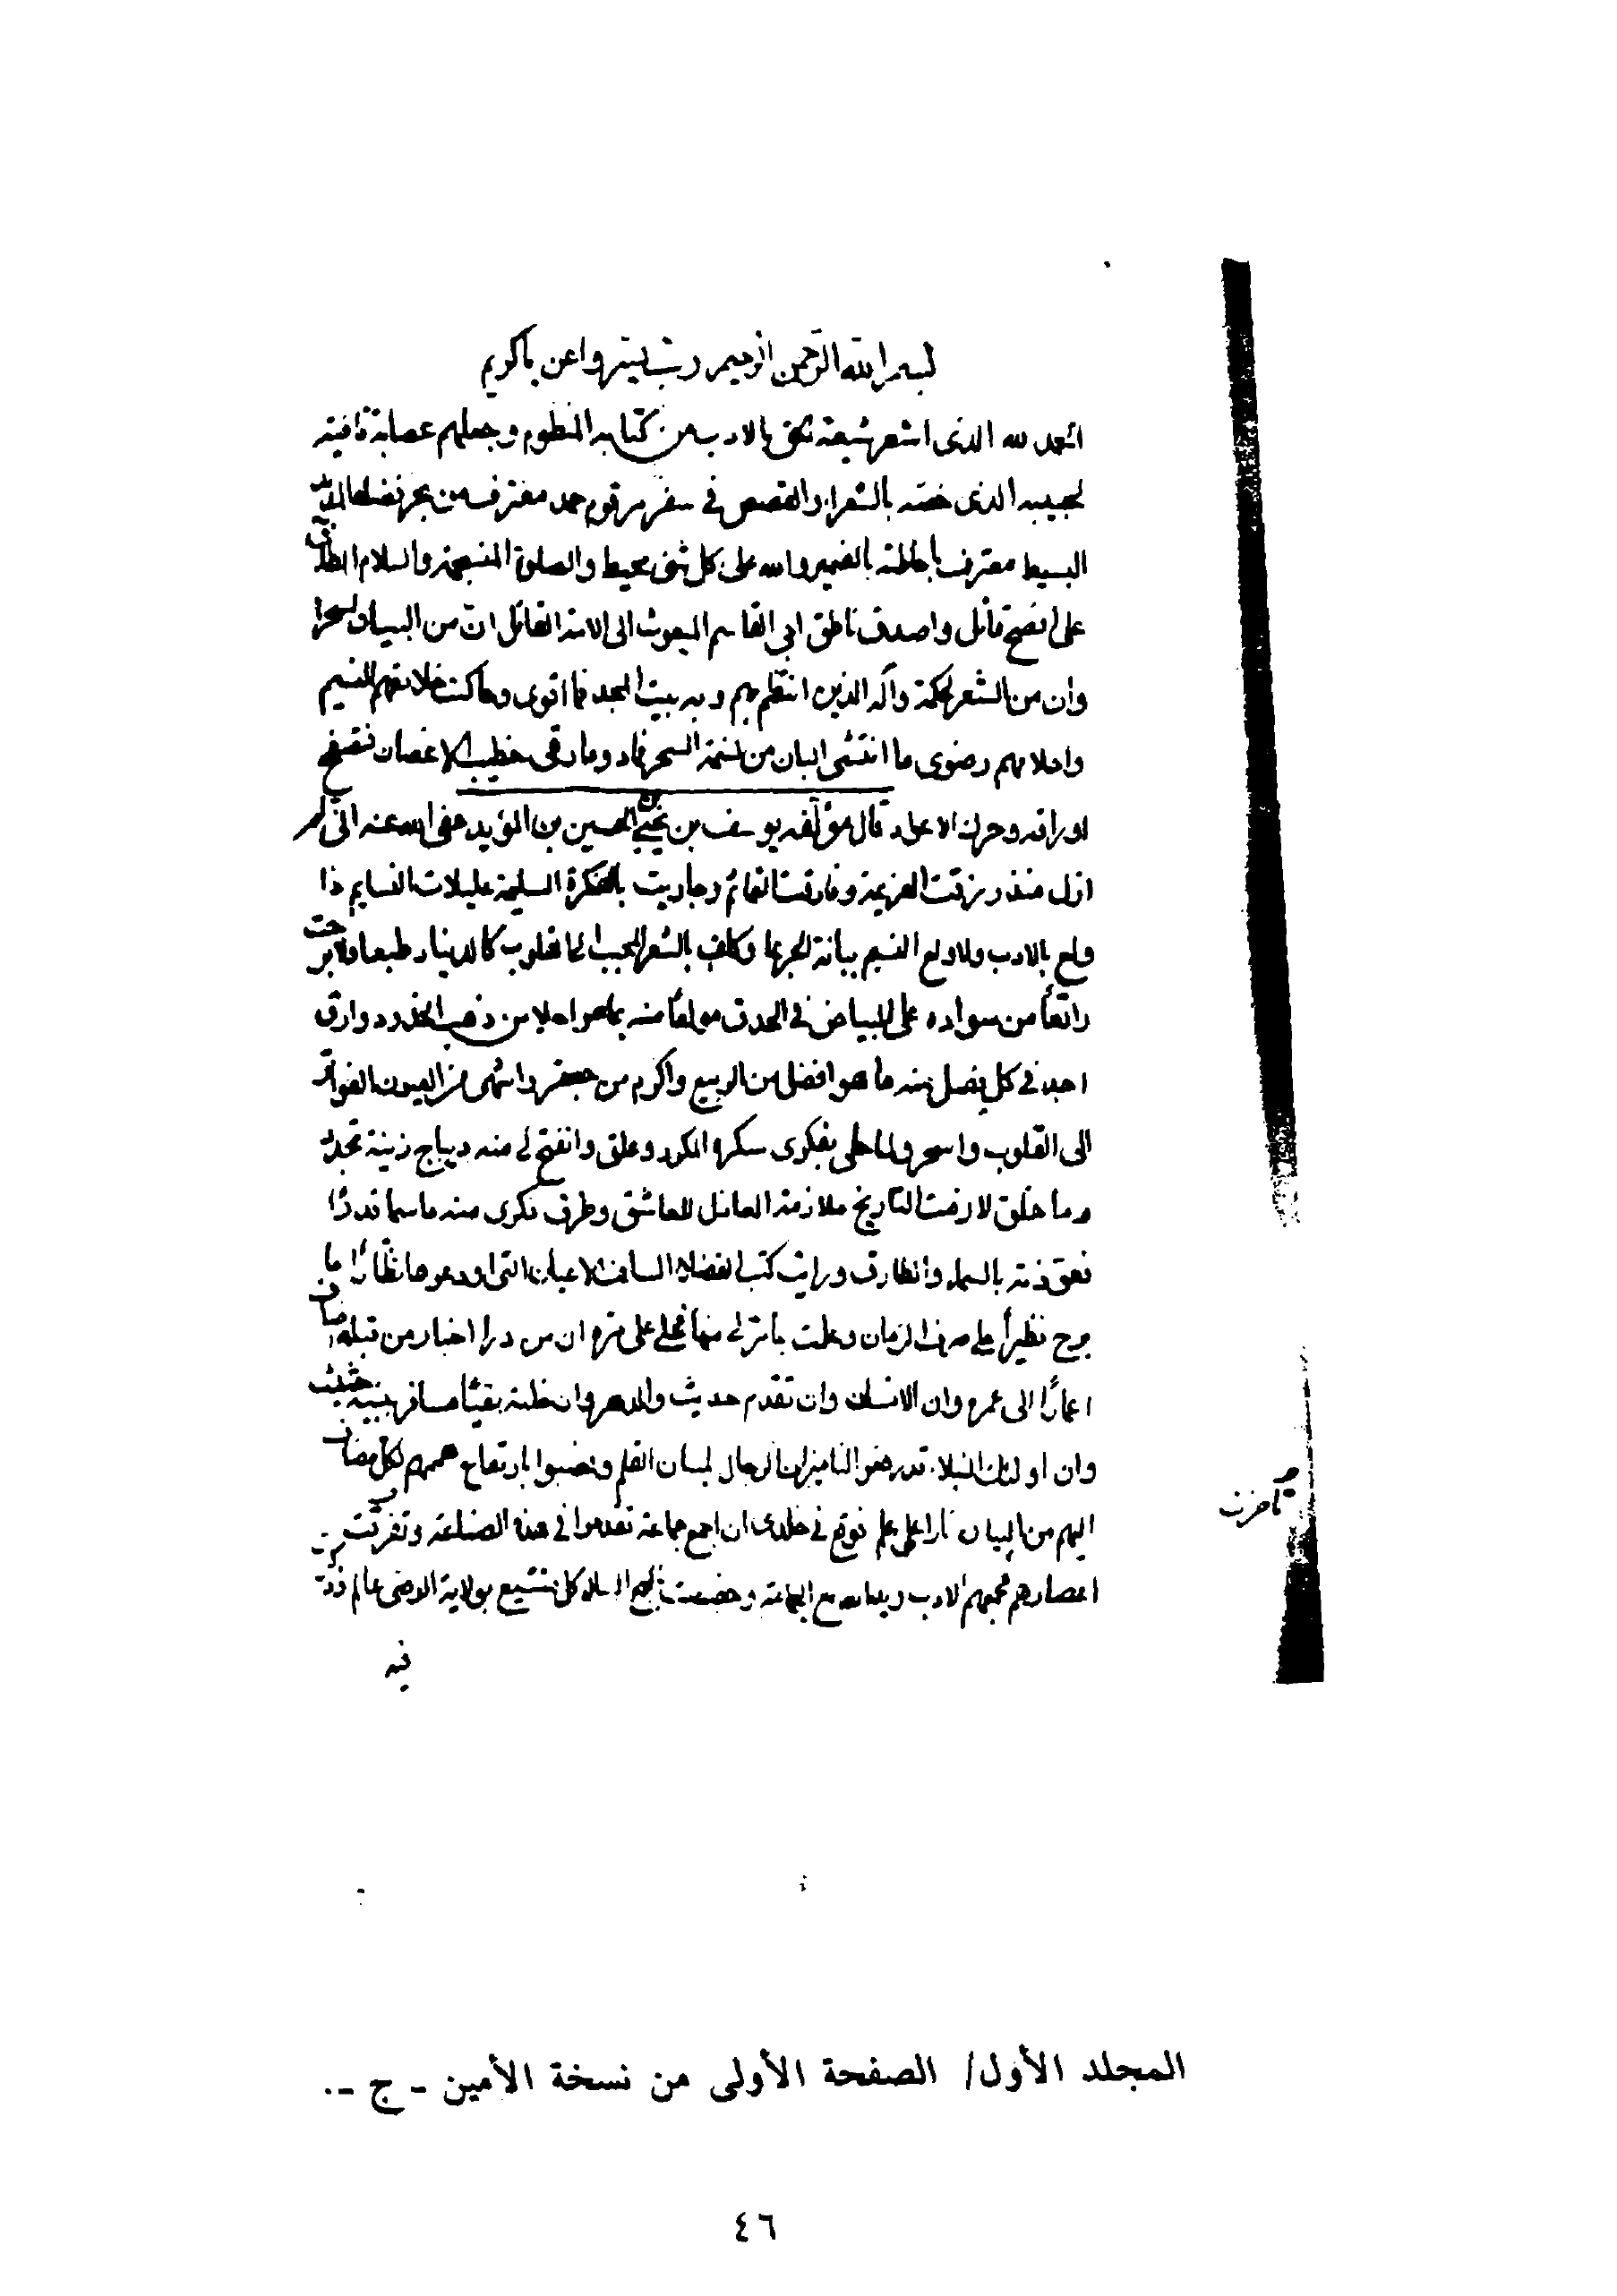 بسم الله الرحمن الرحيم رب يسر واعن يا كريم
الحمد لله الذى اشعر شيعته بالادب من كتابه المنظوم وجعلهم عصابة ثاقبة
لحبيبه الذى خصّه بالشعراء والقصص فى سفر مرقوم حمد مغترف من بحر فضله المديد
البسيط معترف باحاطته بالضمير والله على كل شئ محيط والصلوة المنسجمة والسلام
على افصح قائل واصدق ناطق ابى القاسم المبعوث الى الامة القائل انّ من البيان لسحرا
وان من الشعر لحكمة وآله الذين انتظم بهم وبه بيت المجد فما اقوى وحاكت خلائقهم النسيم
واحلامهم رضوى ما انتشى البان من نسمة السحر فماد وما رقى خطيب الاغصان فتصفح
اوراقه وحرك الاعواد قال مؤلفه يوسف بن يحيى بن الحسين بن المؤيد عفى الله عنه انى لم
ازل منذ رزقت العزيمة وفارقت التمائم وجاريت بالفكرة السليمة عليلات النسايم ذا
ولع بالادب ولا ولع النسيم ببانة الجرعا وكلف بالشعر المحبب للقلوب كالدينار طبعا ولا برحت
راتعاً من سواده على البياض فى الحدق مولعاً منه بما هو احلا من ذهب الخدود وارق
اجد فى كل فصل منه ما هو افضل من الربيع واكرم من جعفر واشهى من العيون الفواتر
الى القلوب واسحر ولما حلى بفكرى سكره المكرر وعلق وانفتح لى منه ديباج زينة تجدد
وما خلق لازمت التاريخ ملازمة العاذل للعاشق وطرق فكرى منه ما سما قدرًا
ورايت كتب الفضلاء السالف الاعيان التى اودعوها نظارًا ما
برح نظيراً على صرف الزمان وعلمت
اعمارًا الى عمره وان الانسان وان تقدم حديث والدهر
وان اولئك النبلاء قد رفعوا لنا ميزان الرجال لسان القلم ونصبوا بارتفاع هممهم لكل مضاف
اليهم من البيان نارا على علم فوقع فى خلدى ان اجمع جماعة تقدموا فى هذه الصناعة وتفرقت بهم
اعصارهم فجمعهم الادب ويد الله مع الجماعة وخصصت كل متشيع بولاية الوصى عالم
فيه
المجلد الأول/ الصفحة الأولى من نسخة الأمين - ج -.
٤٦